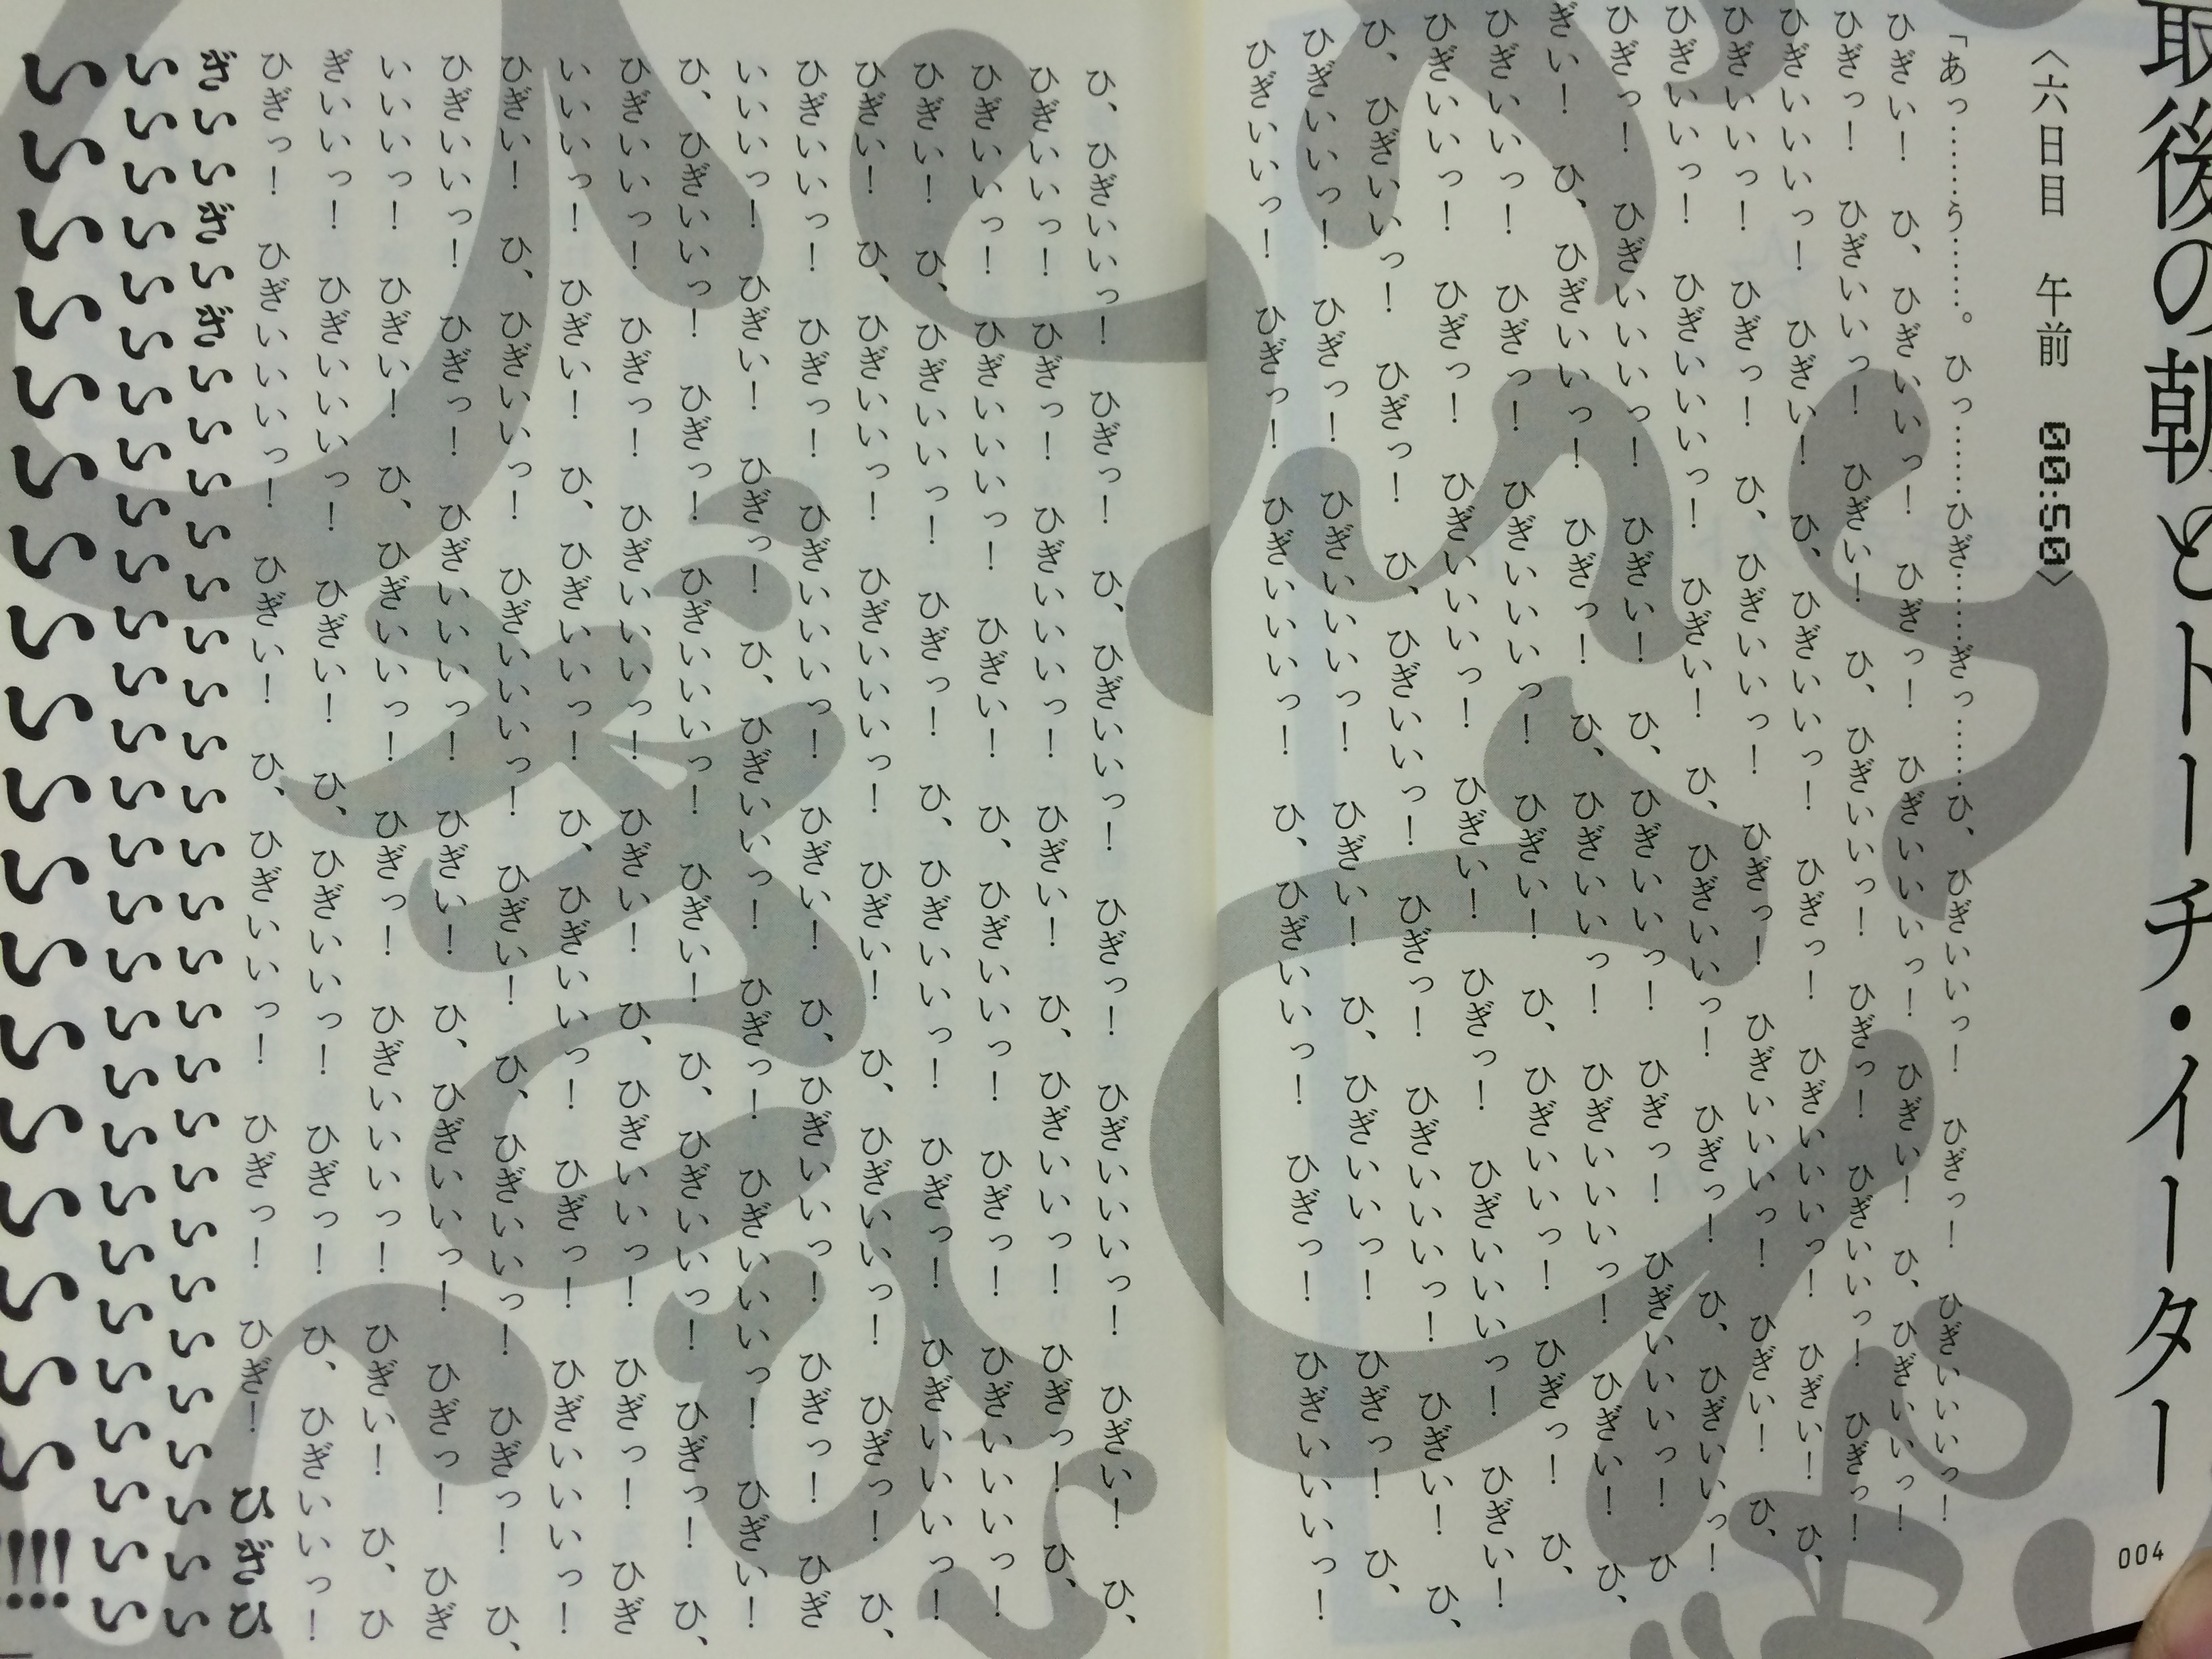 最後の朝とトーチ・イーター
〈六日目　午前　00:50〉
「あっ………う……。ひっ………ひぎ………ぎっ………ひ、ひぎいいっ！　ひぎっ！　ひぎいいいっ！
ひぎい！　ひ、ひぎいいっ！　ひぎっ！　ひぎいいいっ！　ひぎい！　ひ、ひぎいいっ！
ひぎっ！　ひぎいいっ！　ひぎい！　ひ、ひぎいいっ！　ひぎっ！　ひぎいいっ！　ひぎっ！
ひぎいいいっ！　ひぎい！　ひ、ひぎいいっ！　ひぎっ！　ひぎいいいっ！　ひぎい！　ひ、
ひぎいいっ！　ひぎっ！　ひ、ひぎいいっ！　ひぎっ！　ひぎいいいっ！　ひぎい！　ひ、
ひぎいいっ！　ひぎいいいっ！　ひぎい！　ひ、ひぎいいっ！　ひぎっ！　ひ、ひぎいいっ！
ひぎっ！　ひぎいいいっ！　ひぎい！　ひ、ひぎいいっ！　ひぎっ！　ひぎいいいっ！　ひ
ぎい！　ひ、ひぎいいっ！　ひぎっ！　ひ、ひぎいいっ！　ひぎいいいっ！　ひぎい！　ひ、
ひぎいいっ！　ひぎっ！　ひぎいいいっ！　ひぎい！　ひ、ひぎいいっ！　ひぎっ！　ひ、
ひぎいいっ！　ひぎっ！　ひぎいいいっ！　ひぎい！　ひぎっ！　ひぎいいいっ！　ひぎい！
ひ、ひぎいいっ！　ひぎっ！　ひ、ひぎいいっ！　ひぎっ！　ひぎいいいっ！　ひぎい！　ひ、
ひぎいいっ！　ひぎっ！　ひぎいいいっ！　ひぎい！　ひ、ひぎいいっ！　ひぎっ！　ひ、
ひぎいいっ！　ひぎっ！　ひぎいいいっ！　ひ、ひぎいいっ！　ひぎっ！　ひぎいいいっ！
004
ひ、ひぎいいっ！　ひぎっ！　ひ、ひぎいいっ！　ひぎっ！　ひぎいいいっ！　ひぎい！　ひ、
ひぎいいっ！　ひぎっ！　ひぎいいいっ！　ひぎい！　ひ、ひぎいいっ！　ひぎっ！　ひ、
ひぎいいっ！　ひぎいいいっ！　ひぎい！　ひ、ひぎいいっ！　ひぎっ！　ひぎいいいっ！
ひぎい！　ひ、ひぎいいっ！　ひぎっ！　ひ、ひぎいいっ！　ひぎっ！　ひぎいいいっ！
ひぎい！　ひ、ひぎいいっ！　ひぎいいいっ！　ひぎい！　ひ、ひぎいいっ！　ひぎっ！　ひ、
ひぎいいっ！　ひぎっ！　ひぎいいいっ！　ひぎい！　ひ、ひぎいいっ！　ひぎっ！　ひぎ
いいいっ！　ひぎい！　ひぎっ！　ひ、ひぎいいっ！　ひぎっ！　ひぎいいいっ！　ひぎい！
ひ、ひぎいいっ！　ひぎっ！　ひぎいいいっ！　ひぎい！　ひ、ひぎいいっ！　ひぎっ！　ひ、
ひぎいいっ！　ひぎっ！　ひぎいいいっ！　ひぎい！　ひ、ひぎいいっ！　ひぎっ！　ひぎ
いいいっ！　ひぎい！　ひ、ひぎいいっ！　ひ、ひぎいいっ！　ひぎっ！　ひぎいいいっ！
ひぎい！　ひ、ひぎいいっ！　ひぎいいいっ！　ひぎい！　ひ、ひぎいいっ！　ひぎっ！　ひ、
ひぎいいっ！　ひぎっ！　ひぎいいいっ！　ひぎい！　ひ、ひぎいいっ！　ひぎっ！　ひぎ
いいいっ！　ひぎい！　ひ、ひぎいいっ！　ひぎっ！　ひぎいいいっ！　ひぎい！　ひ、ひ
ぎいいっ！　ひぎいいいっ！　ひぎい！　ひ、ひぎいいっ！　ひぎっ！　ひ、ひぎいいっ！
ひぎっ！　ひぎいいいっ！　ひぎい！　ひ、ひぎいいっ！　ひぎっ！　ひぎ！　ひぎひ
ぎいいぎいぎいいいいいいいいいいいいいいいいいいいいいいいい
いいいいいいいいいいいいいいいいいいいいいいいいいいいい
いいいいいいいいいいいいいいいいいい!!!